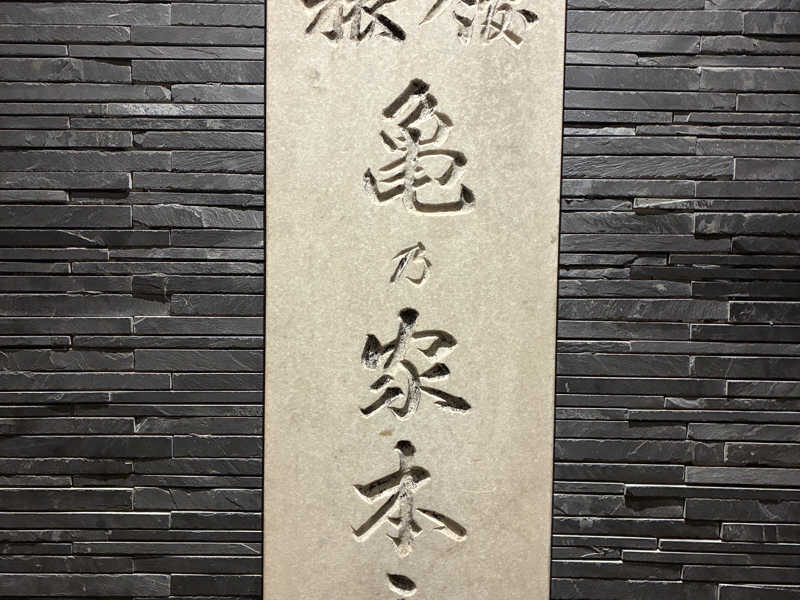 亀乃家本